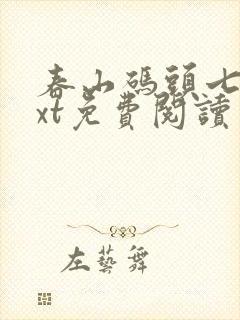 春山碼頭七
xt免費閱讀
左藝舞